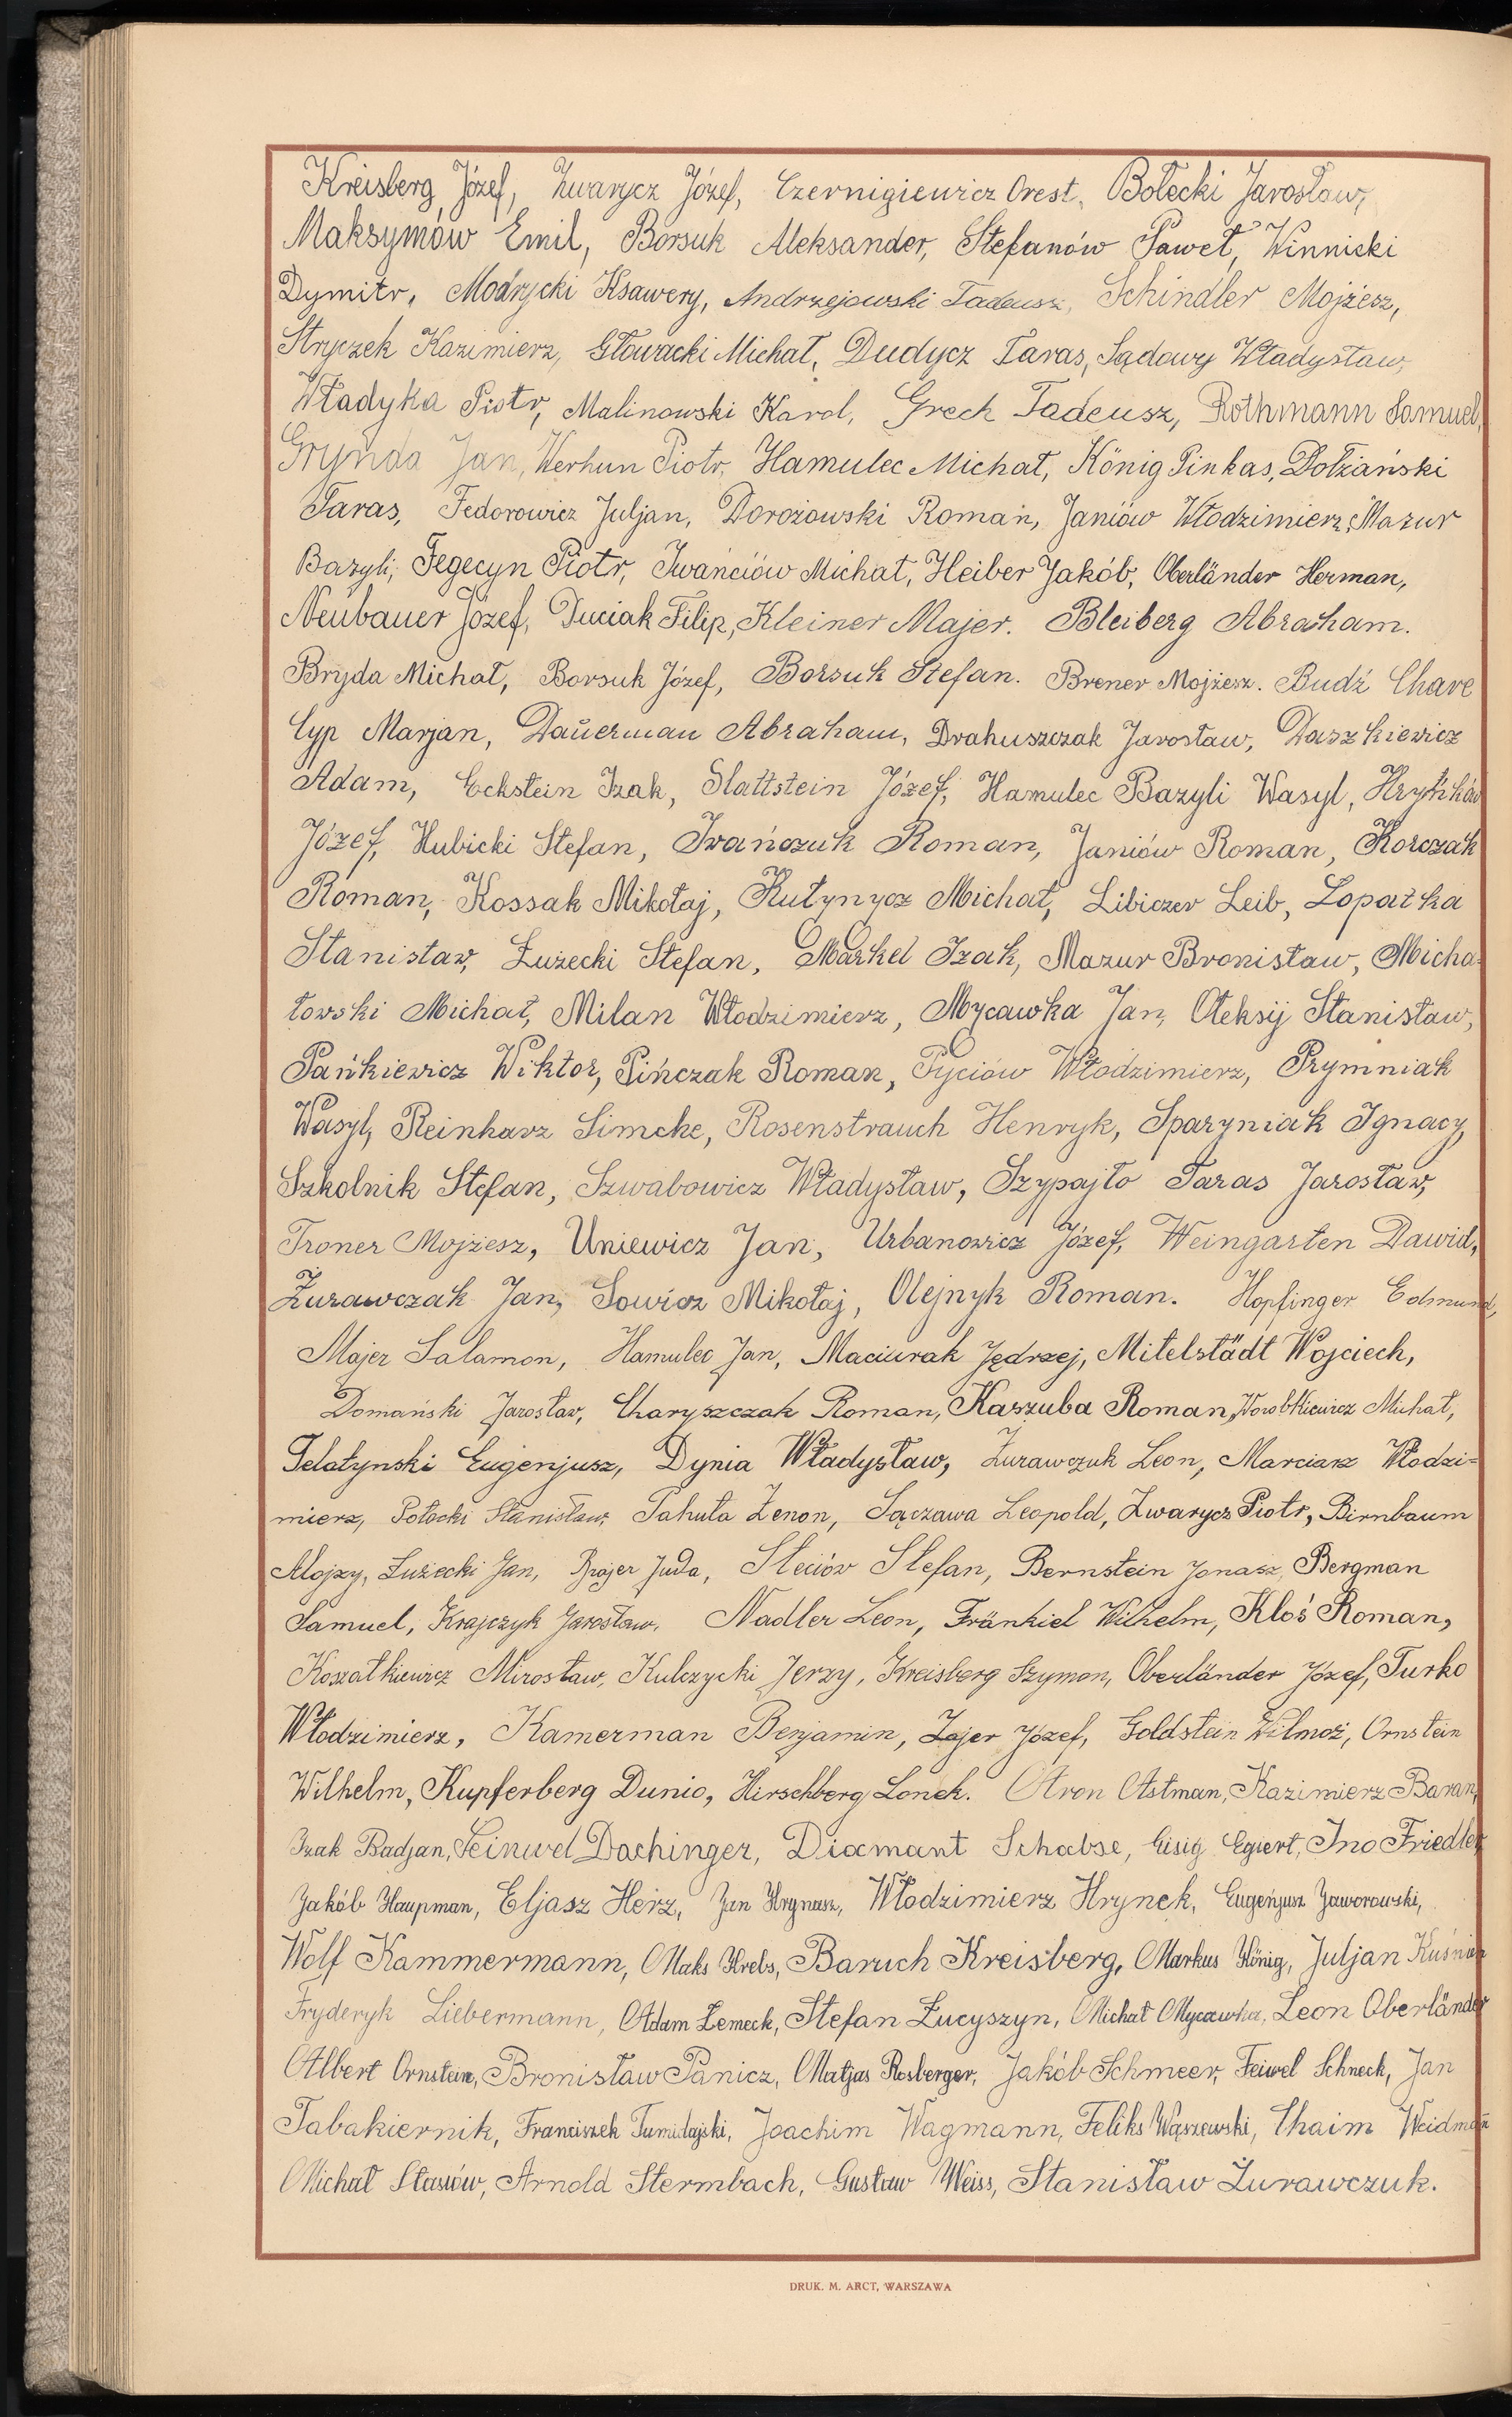 Kreisberg Józef, Zwarycz Józef, Czernigiewicz Orest, Bołecki Jarosław,
Maksymów Emil, Borsuk Aleksander, Stefanów Paweł, Winnicki
Dymitr, Modrycki Ksawery, Andrzejowski Tadeusz, Schindler Mojżesz,
Stryczek Kazimierz, Głowacki Michał, Dudycz Taras, Sądowy Władysław,
Władyka Piotr, Malinowski Karol, Grech Tadeusz, Rothmann Samuel,
Grynda Jan, Werhun Piotr, Hamulec Michał, König Pinkas, Dołżański
Taras, Fedorowicz Juljan, Dorożowski Roman, Janiów Włodzimierz, Mazur
Bazyli, Fegecyn Piotr, Iwańciów Michał, Heiber Jakób, Oberländer Herman,
Neubauer Józef, Duciak Filip, Kleiner Majer. Bleiberg Abraham.
Bryda Michał, Borsuk Józef, Borsuk Stefan. Brener Mojżesz. Budź Chare
Cyp Marjan, Dauerman Abraham, Drahuszczak Jarosław, Daszkiewicz
Adam, Eckstein Izak, Glattstein Józef, Hamulec Bazyli Wasyl,
Józef, Hubicki Stefan, Iwańczuk Roman, Janiów Roman, Korczak
Roman, Kossak Mikołaj, Kutynycz Michał, Libiczer Leib, Łopatka
Stanisław, Łużecki Stefan, Markel Izak, Mazur Bronisław, Micha-
łowski Michał, Milan Włodzimierz, Mycawka Jan, Oleksij Stanisław,
Pańkiewicz Wiktor, Pińczak Roman, Pyciów Włodzimierz, Prymniak
Wasyl, Reinharz Simche, Rosenstrauch Henryk, Sparyniak Ignacy,
Szkolnik Stefan, Szwabowicz Władysław, Szypajło Taras Jarosław,
Troner Mojżesz, Uniewicz Jan, Urbanowicz Józef, Weingarten Dawid,
Żurawczak Jan, Sowicz Mikołaj, Olejnyk Roman. Hopfinger Edmund,
Majer Salamon, Hamulec Jan, Maciurak Jędrzej, Mitelstädt Wojciech,
Domański Jarosław, Charyszczak Roman, Kaszuba Roman, Worobkiewicz Michał,
Telatynski Eugenjusz, Dynia Władysław, Żurawczuk Leon, Marciasz Włodzi-
mierz, Potocki Stanisław, Pahuta Zenon, Sączawa Leopold, Zwarycz Piotr, Birnbaum
Alojzy, Łużecki Jan, Brojer Juda, Steciów Stefan, Bernstein Jonasz, Bergman
Samuel, Krajczyk Jarosław, Nadler Leon, Fränkiel Wilhelm, Kłoś Roman,
Koszatkiewicz Mirosław, Kulczycki Jerzy, Kreisberg Szymon, Oberländer Józef, Turko
Włodzimierz, Kamerman Benjamin, Zajer Józef, Goldstein Wilmoś, Ornstein
Wilhelm, Kupferberg Dunio, Hirschberg Lonek. Aron Astman, Kazimierz Baran,
Izak Badjan, Feiwel Dachinger, Diamant Schabse, Eisig Egiert, Ino Friedler
Jakób Haupman, Eljasz Herz, Jan Hrynasz, Włodzimierz Hrynek, Eugenjusz Jaworowski,
Wolf Kammermann, Maks Krebs, Baruch Kreisberg, Markus König, Juljan Kuśnier
Fryderyk Liebermann, Adam Łemeck, Stefan Łucyszyn, Michał Mycawka, Leon Oberländer
Albert Ornstein, Bronisław Panicz, Matjas Rosberger, Jakób Schmeer, Feiwel Schneck, Jan
Tabakiernik, Franciszek Tumidajski, Joachim Wagmann, Feliks Wąszewski, Chaim Weidman
Michał Stasiów, Arnold Stermbach, Gustaw Weiss, Stanisław Żurawczuk.
DRUK. M. ARCT, WARSZAWA